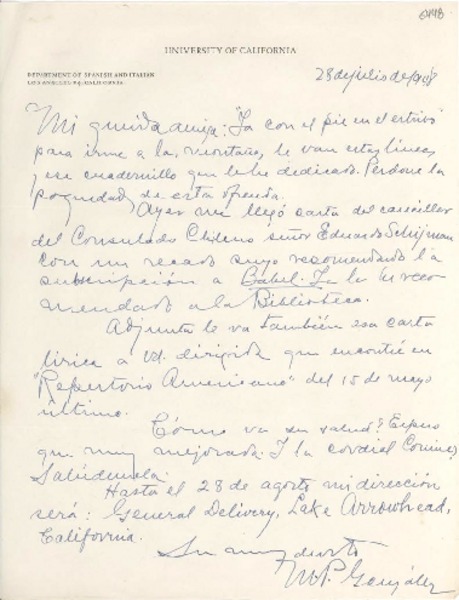 6448
UNIVERSITY OF CALIFORNIA
DEPARTMENT OF SPANISH AND ITALIAN
LOS ANGELES 24, CALIFORNIA
28 de julio de 1948
Mi querida amiga: Ya con el pie en el estribo
para irme a la montaña, le van estas líneas
y ese cuadernillo que le he dedicado. Perdone la
poquedad de esta ofrenda.
Ayer me llegó carta del canciller
del Consulado Chileno señor Eduardo
con un recado suyo recomendando la
subscripción a Babel. Ya la he reco
mendado a la Biblioteca.
Adjunta le va también esa carta
lírica a vd. dirigida que encontré en
"Repertorio Americano" del 15 de mayo
último.
Cómo va su salud? Espero
que muy mejorada. Y la cordial
Salúdemela.
Hasta el 28 de agosto mi dirección
será: General Delivery, Lake Arrowhead,
California.
Su muy devoto
M.P. González